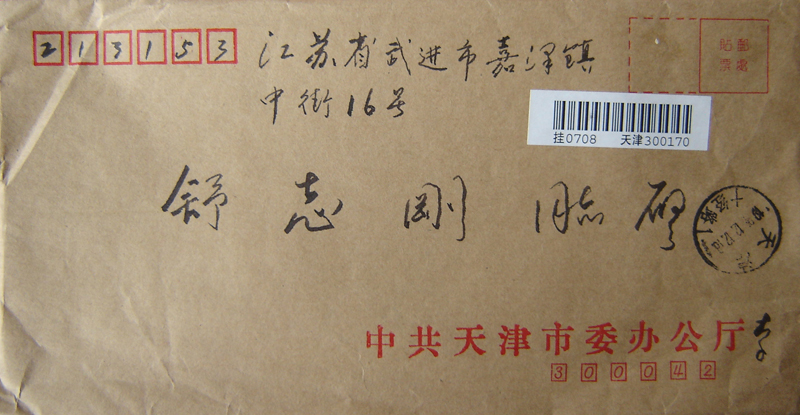 213153
江苏省武进市嘉泽镇
中街16号
贴邮
票处
挂0708 天津300170
舒志刚 同志 启
天津
中共天津市委办公厅 李
300042